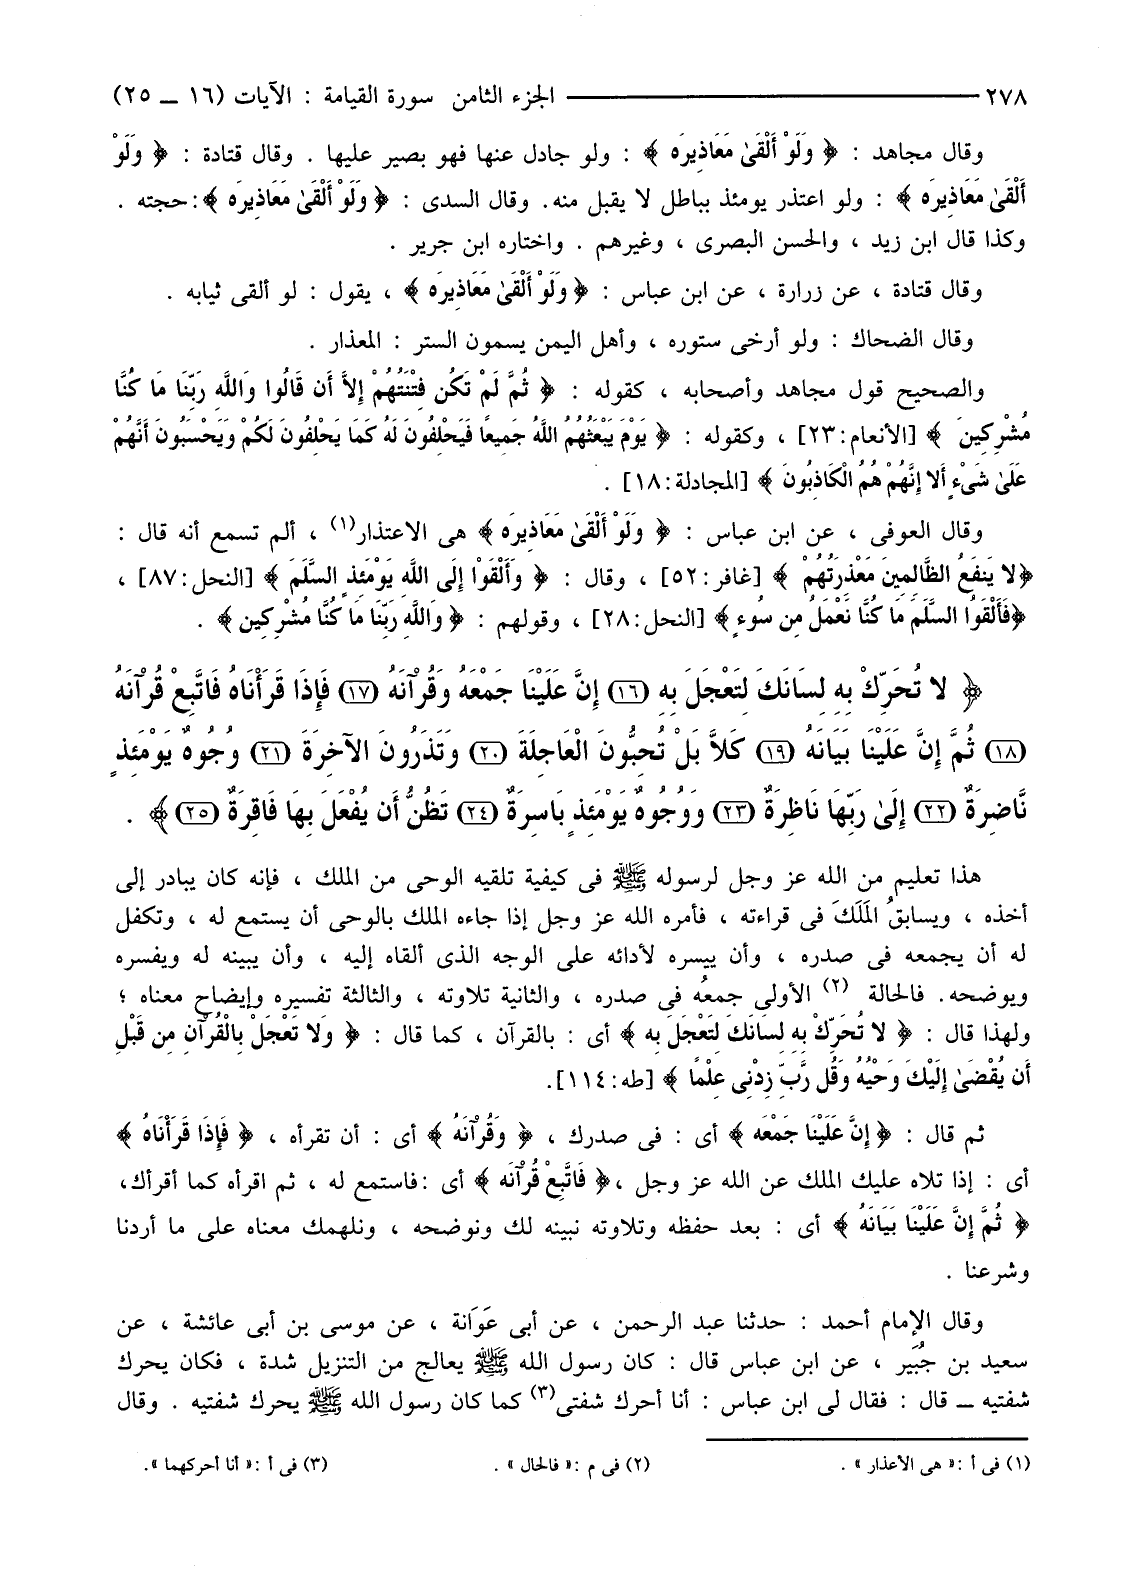 ٢٧٨ ــــــــــــــــــــــ الجزء الثامن سورة القيامة : الآيات (١٦ ــ ٢٥)
وقال مجاهد : ﴿ وَلَوْ أَلْقَىٰ مَعَاذِيرَه ﴾ : ولو جادل عنها فهو بصير عليها . وقال قتادة : ﴿ وَلَوْ
أَلْقَىٰ مَعَاذِيرَه ﴾ : ولو اعتذر يومئذ بباطل لا يقبل منه. وقال السدى : ﴿ وَلَوْ أَلْقَىٰ مَعَاذِيرَه ﴾: حجته .
وكذا قال ابن زيد ، والحسن البصرى ، وغيرهم . واختاره ابن جرير .
وقال قتادة ، عن زرارة ، عن ابن عباس : ﴿ وَلَوْ أَلْقَىٰ مَعَاذِيرَه ﴾ ، يقول : لو ألقى ثيابه .
وقال الضحاك : ولو أرخى ستوره ، وأهل اليمن يسمون الستر : المعذار .
والصحيح قول مجاهد وأصحابه ، كقوله : ﴿ ثُمَّ لَمْ تَكُن فِتْنَتُهُمْ إِلاَّ أَن قَالُوا وَاللَّهِ رَبِّنَا مَا كُنَّا
مُشْرِكِينَ ﴾ [الأنعام:٢٣] ، وكقوله : ﴿ يَوْمَ يَبْعَثُهُمُ اللَّهُ جَمِيعًا فَيَحْلِفُونَ لَهُ كَمَا يَحْلِفُونَ لَكُمْ وَيَحْسَبُونَ أَنَّهُمْ
عَلَىٰ شَىْءٍ أَلا إِنَّهُمْ هُمُ الْكَاذِبُونَ ﴾ [المجادلة:١٨] .
وقال العوفى ، عن ابن عباس : ﴿ وَلَوْ أَلْقَىٰ مَعَاذِيرَه ﴾ هى الاعتذار(١) ، ألم تسمع أنه قال :
﴿لا يَنفَعُ الظَّالِمِينَ مَعْذِرَتُهُمْ ﴾ [غافر:٥٢] ، وقال : ﴿ وَأَلْقَوْا إِلَى اللَّهِ يَوْمَئِذٍ السَّلَمَ ﴾ [النحل:٨٧] ،
﴿فَأَلْقَوُا السَّلَمَ مَا كُنَّا نَعْمَلُ مِن سُوءٍ﴾ [النحل:٢٨] ، وقولهم : ﴿ وَاللَّهِ رَبِّنَا مَا كُنَّا مُشْرِكِين ﴾ .
﴿ لا تُحَرِّكْ بِهِ لِسَانَكَ لِتَعْجَلَ بِهِ (١٦) إِنَّ عَلَيْنَا جَمْعَهُ وَقُرْآنَهُ (١٧) فَإِذَا قَرَأْنَاهُ فَاتَّبِعْ قُرْآنَهُ
(١٨) ثُمَّ إِنَّ عَلَيْنَا بَيَانَهُ (١٩) كَلاَّ بَلْ تُحِبُّونَ الْعَاجِلَةَ (٢٠) وَتَذَرُونَ الآخِرَةَ (٢١) وُجُوهٌ يَوْمَئِذٍ
نَّاضِرَةٌ (٢٢) إِلَىٰ رَبِّهَا نَاظِرَةٌ (٢٣) وَوُجُوهٌ يَوْمَئِذٍ بَاسِرَةٌ (٢٤) تَظُنُّ أَن يُفْعَلَ بِهَا فَاقِرَةٌ (٢٥) ﴾ .
هذا تعليم من الله عز وجل لرسوله ﷺ فى كيفية تلقيه الوحى من الملك ، فإنه كان يبادر إلى
أخذه ، ويسابقُ المَلَكَ فى قراءته ، فأمره الله عز وجل إذا جاءه الملك بالوحى أن يستمع له ، وتكفل
له أن يجمعه فى صدره ، وأن ييسره لأدائه على الوجه الذى ألقاه إليه ، وأن يبينه له ويفسره
ويوضحه. فالحالة (٢) الأولى جمعُه فى صدره ، والثانية تلاوته ، والثالثة تفسيره وإيضاح معناه ؛
ولهذا قال : ﴿ لا تُحَرِّكْ بِهِ لِسَانَكَ لِتَعْجَلَ بِه ﴾ أى : بالقرآن ، كما قال : ﴿ وَلا تَعْجَلْ بِالْقُرْآنِ مِن قَبْلِ
أَن يُقْضَىٰ إِلَيْكَ وَحْيُهُ وَقُل رَّبِّ زِدْنِى عِلْمًا ﴾ [طه:١١٤].
ثم قال : ﴿ إِنَّ عَلَيْنَا جَمْعَه ﴾ أى : فى صدرك ، ﴿ وَقُرْآنَهُ ﴾ أى : أن تقرأه ، ﴿ فَإِذَا قَرَأْنَاهُ ﴾
أى : إذا تلاه عليك الملك عن الله عز وجل ، ﴿ فَاتَّبِعْ قُرْآنَه ﴾ أى :فاستمع له ، ثم اقرأه كما أقرأك،
﴿ ثُمَّ إِنَّ عَلَيْنَا بَيَانَهُ ﴾ أى : بعد حفظه وتلاوته نبينه لك ونوضحه ، ونلهمك معناه على ما أردنا
وشرعنا .
وقال الإمام أحمد : حدثنا عبد الرحمن ، عن أبى عَوَانة ، عن موسى بن أبى عائشة ، عن
سعيد بن جُبَير ، عن ابن عباس قال : كان رسول الله ﷺ يعالج من التنزيل شدة ، فكان يحرك
شفتيه ــ قال : فقال لى ابن عباس : أنا أحرك شفتى(٣) كما كان رسول الله ﷺ يحرك شفتيه . وقال
(١) فى أ :« هى الأعذار » .
(٢) فى م :« فالحال » .
(٣) فى أ :« أنا أحركهما ».